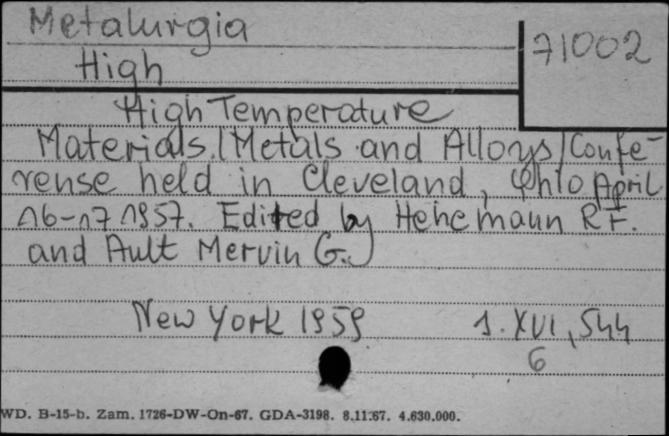 Metalurgia
71002
High
High Temperature
Materials. (Metals and Alloys) Confe-
rense held in Cleveland, Ohio April
16-17 1957. Edited by Hehemann R.F.
and Ault Mervin G.
New York 1959 1. XVI, 544
6
WD. B-15-b. Zam. 1726-DW-On-67. GDA-3198. 8.11.67. 4.630.000.